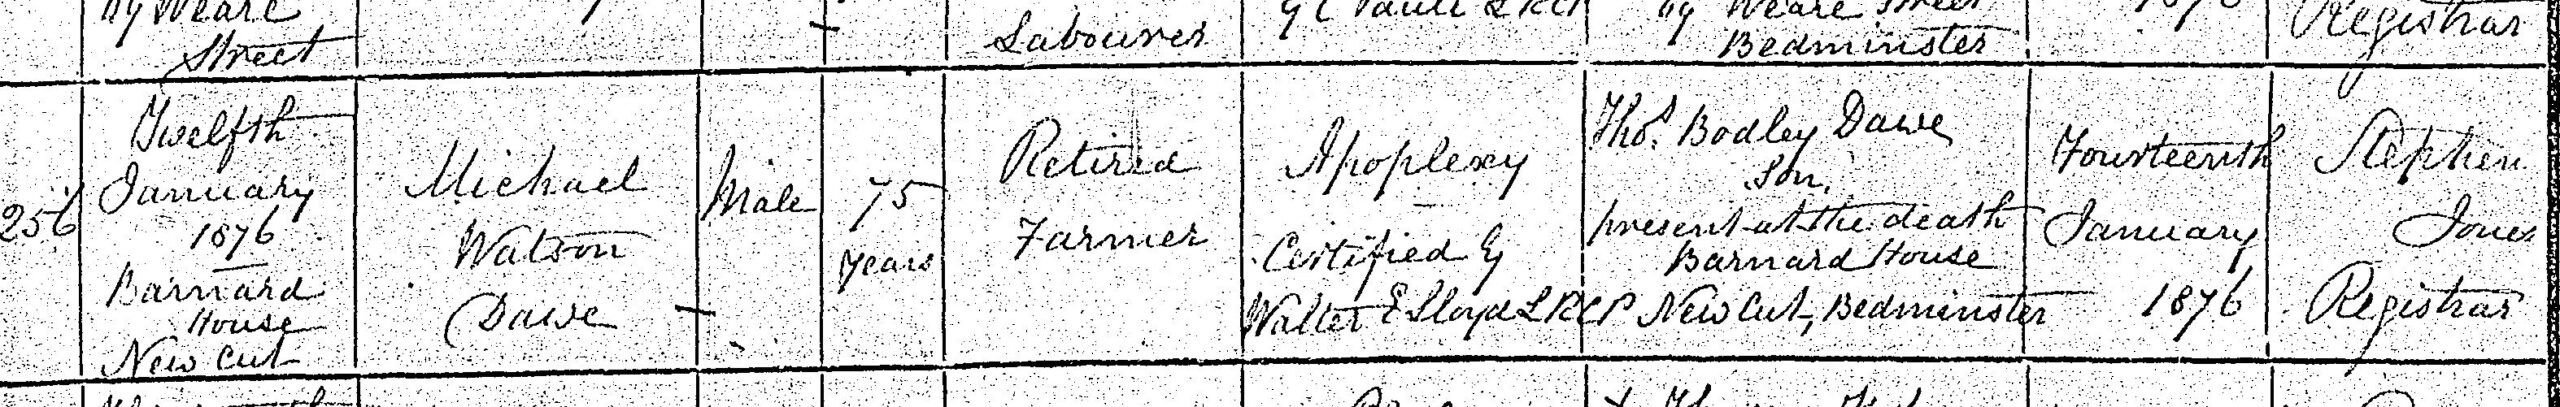 Weare
Street
Labourer
Weare Street
Bedminster
Registrar
256
Twelfth
January
1876
Barnard
House
New Cut
Michael
Watson
Dawe
Male
75
years
Retired
Farmer
Apoplexy
Certified by
Walter E Lloyd LRCP
Thos. Bodley Dawe
Son.
present at the death
Barnard House
New Cut, Bedminster
Fourteenth
January
1876
Stephen
Jones
Registrar